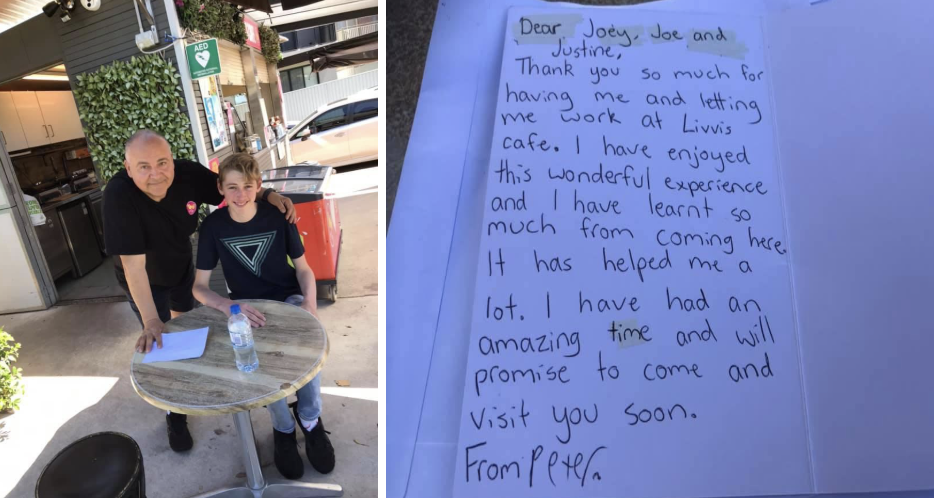 AED
Dear Joey, Joe and
Justine,
Thank you so much for
having me and letting
me work at Livvis
cafe. I have enjoyed
this wonderful experience
and I have learnt so
much from coming here.
It has helped me a
lot. I have had an
amazing time and will
promise to come and
visit you soon.
From Peter.